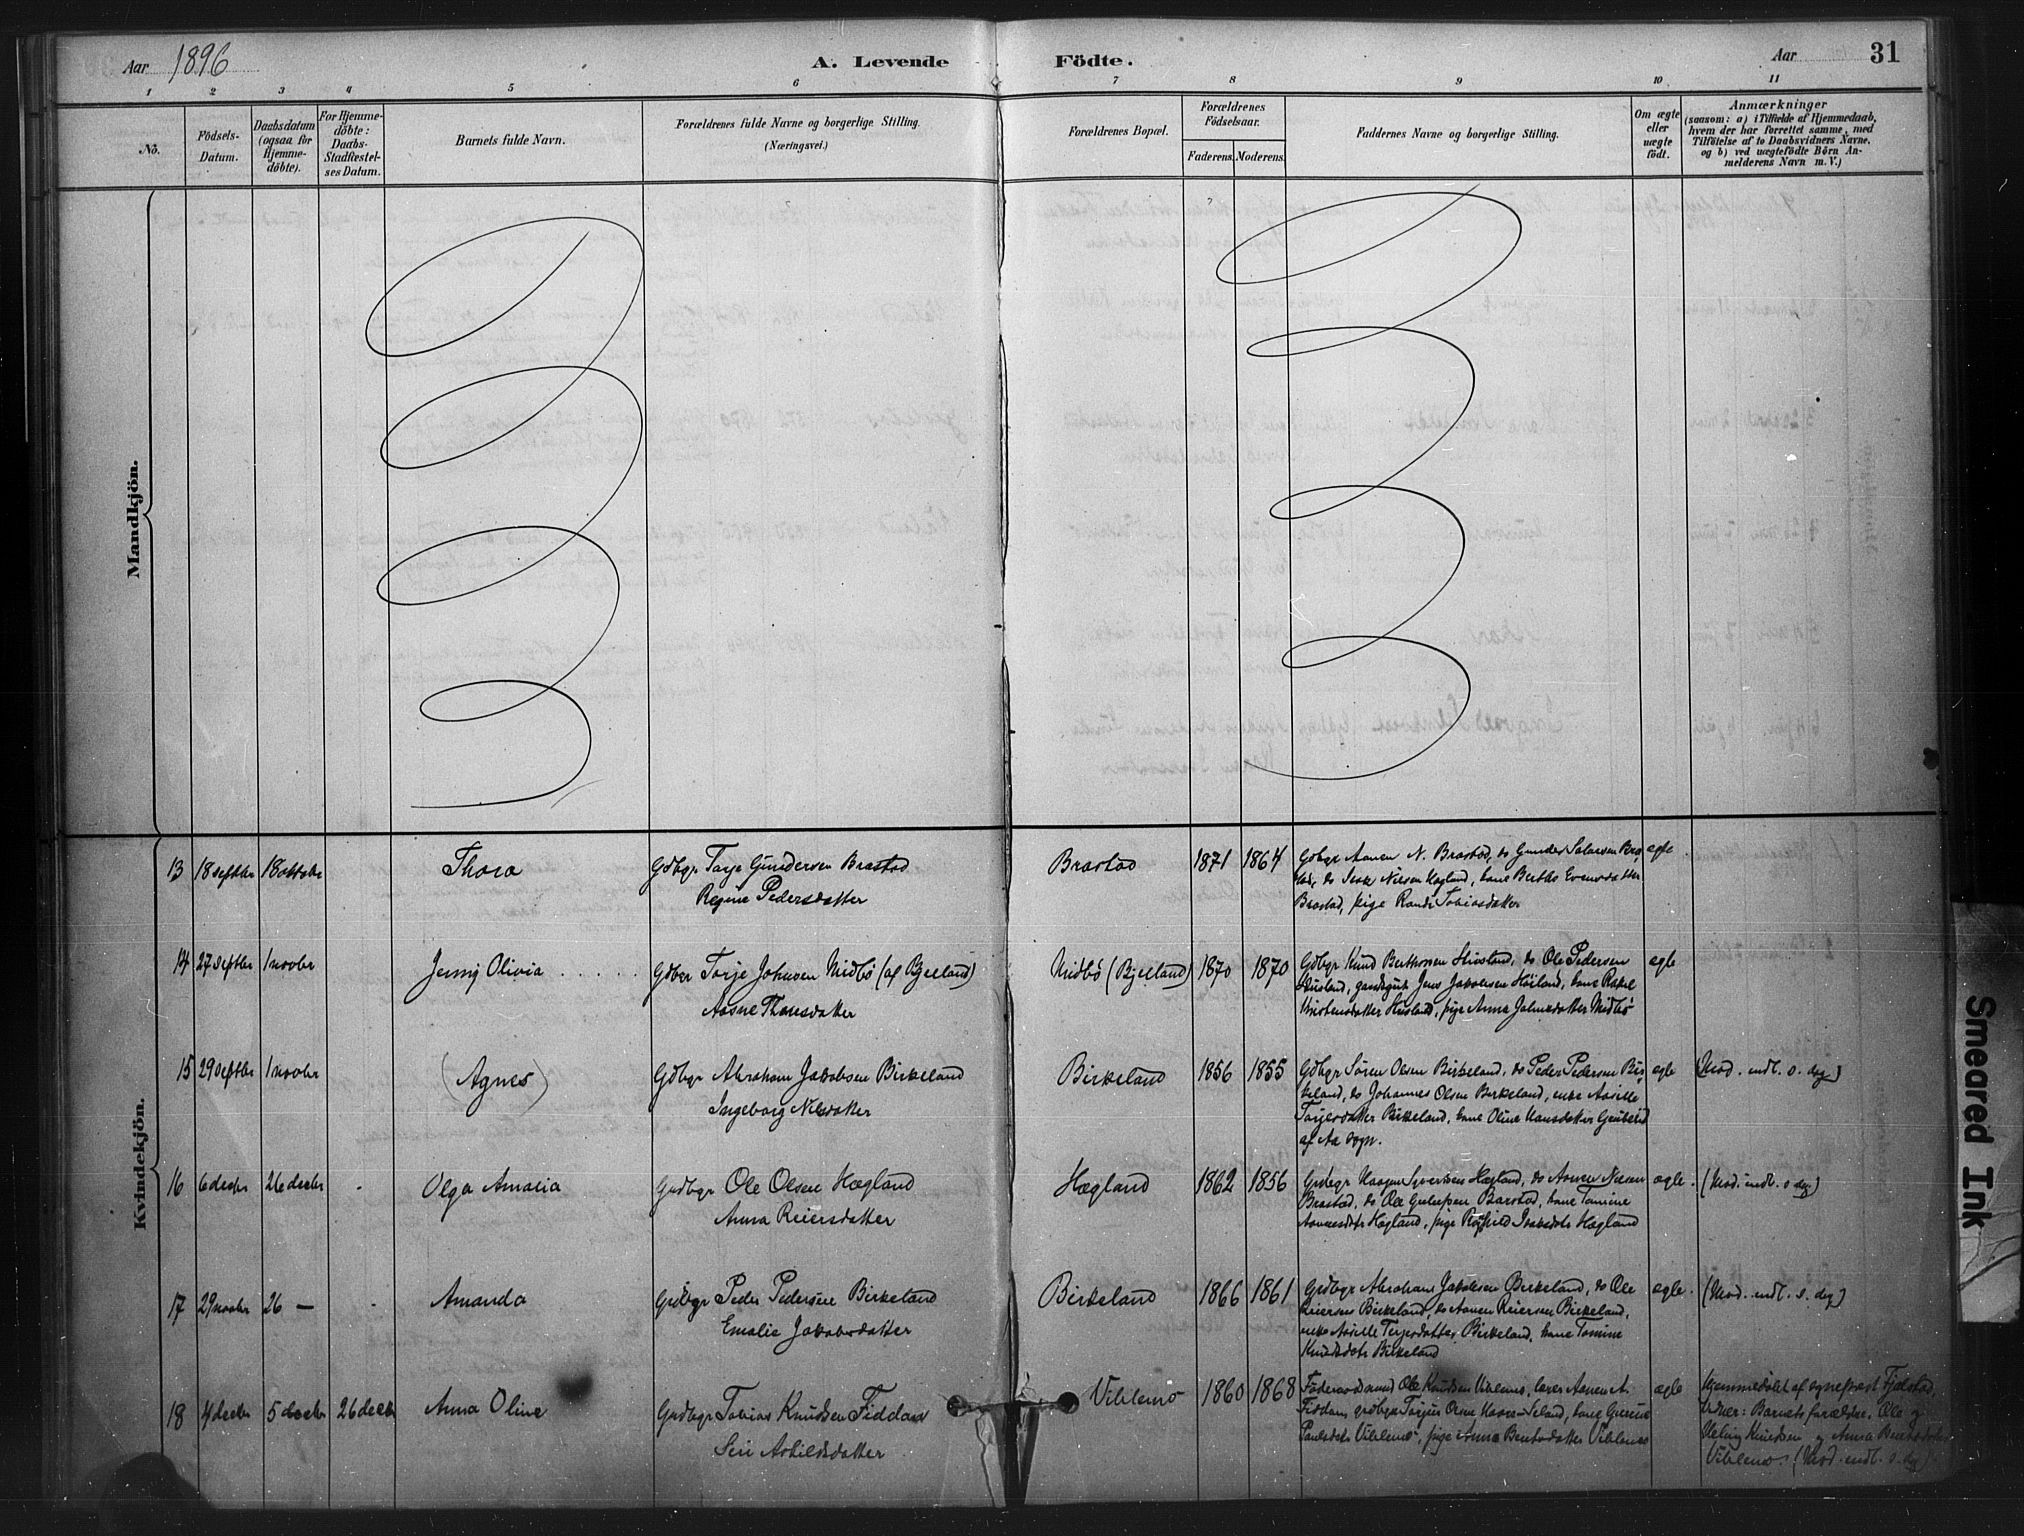 Aar 1896 A. Levende Födte. Aar 31
1 2 3 4 5 6 7 8 9 10 11
No.
Födsels-
Datum.
Daabsdatum
(ogsaa for
Hjemme-
döbte).
For Hjemme-
döbte:
Daabs-
Stadfæstel-
ses Datum.
Barnets fulde Navn.
Forældrenes fulde Navne og borgerlige Stilling.
(Næringsvei.)
Forældrenes Bopæl.
Forældrenes
Födselsaar.
Faderens. Moderens.
Faddernes Navne og borgerlige Stilling.
Om ægte
eller
uægte
født.
Anmærkninger
(saasom: a) i Tilfælde af Hjemmedaab,
hvem der har forrettet samme, med
Tilföielse af to Daabsvidners Navne,
og b) ved uægtefödte Börn An-
melderens Navn m. V.)
Mandkjön.
Kvindekjön.
13 18 septbr 18 oktobr Thora Gdbgr Tarje Gundersen Brastad
Regine Pedersdatter
Brastad 1871 1864
Gdbgr Aanen N. Brastad, do Gunder Salvesen Bra-
stad, do Isak Nilsen Hægland, kone Berthe Evensdatter
Brastad, pige Randi Tobiasdatter
ægte
14 27 septbr 1 novbr Jenny Olivia Gdbgr Tarje Johnsen Midbö (af Bjelland)
Aasne Thorsdatter
Midbö (Bjelland) 1870 1870
Gdbgr Knud Berthonsen Husland, do Ole Pedersen
Husland, Jens Jakobsen Höiland, kone Rakel
Husland, pige Anna Midbö
ægte
15 29 septbr 1 novbr (Agnes) Gdbgr Abraham Jakobsen Birkeland
Ingeborg Nilsdatter
Birkeland 1856 1855
Gdbgr Sören Olsen Birkeland, do Peder Pedersen Bir-
keland, do Johannes Olsen Birkeland, enke Aasille
Tarjesdatter Birkeland, kone Oline Hansdatter
af Aa sogn.
ægte (Mod. indl. s. dag)
16 6 decbr 26 decbr Olga Amalia Grdbgr Ole Olsen Hægland
Anna Reiersdatter
Hægland 1862 1856
Grdbgr Haagen Syvertsen Hægland, do Aanen Nilsen
Brastad, do Ole Barstad, kone Tomine
Aanensdatr Hægland, pige Isaksdatr Hægland
ægte. (Mod. indl. s. dag)
17 29 novbr 26 — Amanda Grdbgr Peder Pedersen Birkeland
Emalie Jakobsdatter
Birkeland 1866 1861
Grdbgr Abraham Jakobsen Birkeland, do Ole
Reiersen Birkeland, do Aanen Reiersen Birkeland,
enke Aasille Terjesdatter Birkeland, kone Tomine
Knudsdatr Birkeland
ægte. (Mod. indl. s. dag)
18 4 decbr 5 decbr 26 decbr Anna Oline Grdbgr Tobias Knudsen Fiddan
Siri Askildsdatter
Vihlemo 1860 1868
Föderaadsmand Ole Knudsen Vihlemo, lærer Aanen A.
Fiddan, grdbgr Tarjus Olsen Seland, kone Gurine
Paulsdatr Vihlemo, pige Anna Bentsdatter Vihlemo
ægte Hjemmedöbt af sogneprest Fjelstad,
vidner: Barnets forældre, Ole og
Knudsen og Anna Bentsdatr
Vihlemo. (Mod. indl. s. dag)
Smeared Ink